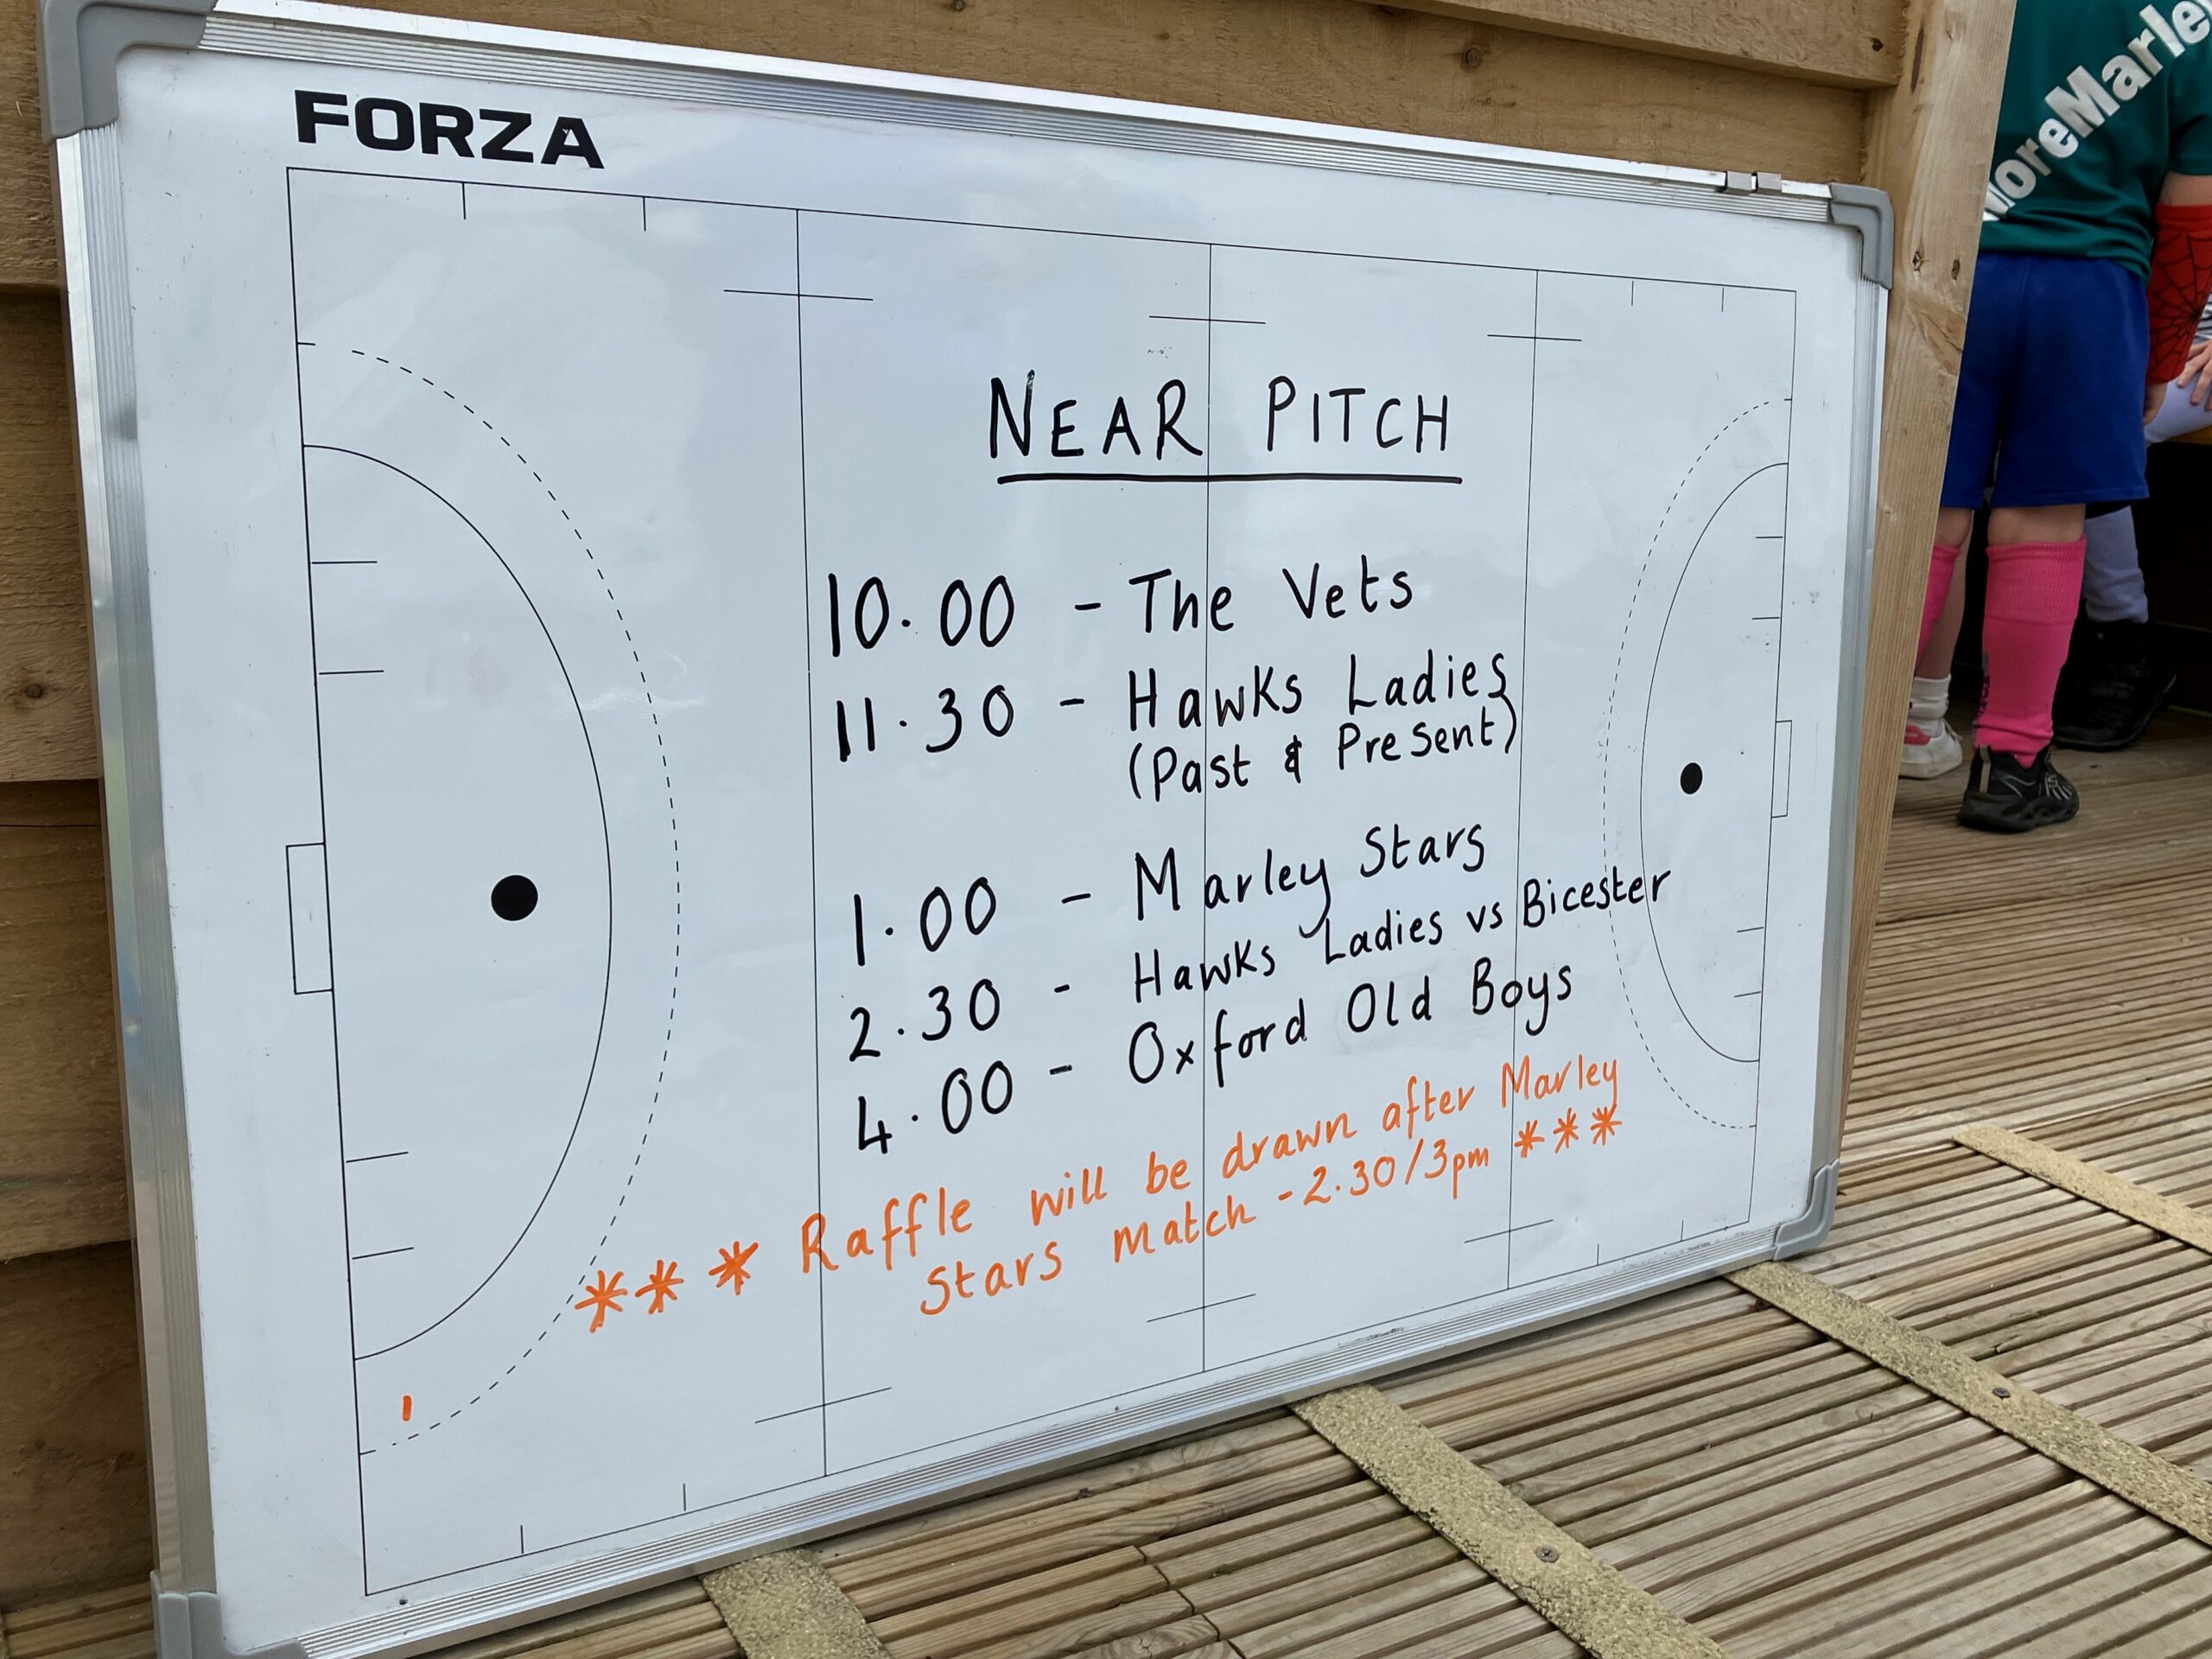 FORZA
NEAR PITCH
10.00 - The Vets
11.30 - Hawks Ladies
(Past & Present)
1.00 - Marley Stars
2.30 - Hawks Ladies vs Bicester
4.00 - Oxford Old Boys
*** Raffle will be drawn after Marley
Stars match - 2.30/3pm ***